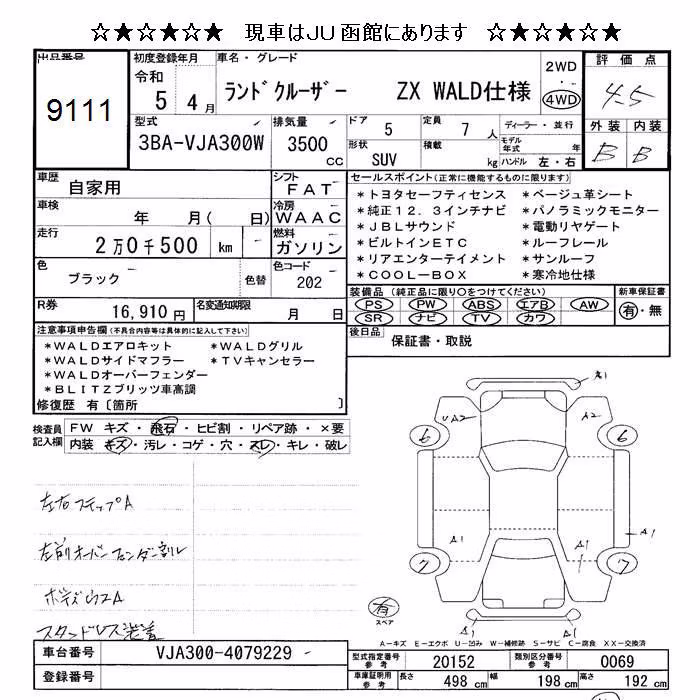 ☆★☆★☆★ 現車はJU函館にあります ☆★☆★☆★
出品番号
9111
初度登録年月
令和
5年4月
車名・グレード
ランドクルーザー ZX WALD仕様
2WD
4WD
評価点
4.5
外装 内装
B B
型式
3BA-VJA300W
排気量
3500
CC
ドア
5
定員
7人
形状
SUV
積載
kg
ディーラー・並行
モデル年式 年
ハンドル 左・右
車歴
自家用
シフト
FAT
車検
年 月( 日)
冷房
WAAC
走行
2万0千500 km
燃料
ガソリン
色
ブラック
色替
色コード
202
R券
16,910円
名変通知期限
月 日
セールスポイント(正常に機能するものに限ります)
*トヨタセーフティセンス *ベージュ革シート
*純正12.3インチナビ *パノラミックモニター
*JBLサウンド *電動リヤゲート
*ビルトインETC *ルーフレール
*リアエンターテイメント *サンルーフ
*COOL-BOX *寒冷地仕様
装備品(純正品に限り○をつけてください)
PS PW ABS エアB AW
SR ナビ TV カワ
新車保証書
有・無
後日品
保証書・取説
注意事項申告欄(不具合内容等は具体的に記入して下さい)
*WALDエアロキット *WALDグリル
*WALDサイドマフラー *TVキャンセラー
*WALDオーバーフェンダー
*BLITZブリッツ車高調
修復歴 有〔箇所 〕
検査員記入欄
FW キズ・飛石・ヒビ割・リペア跡・×要
内装 キズ・汚レ・コゲ・穴・スレ・キレ・破レ
左右ステップA
左前オーバーフェンダー割レ
ボディ小スA
スタッドレス装着
A1
UA2
A2
6
6
A1
A1
A1
7
7
有
スペア
A1
A1
A-キズ E-エクボ U-凹み W-補修跡 S-サビ C-腐食 XX-交換済
車台番号
VJA300-4079229
登録番号
型式指定番号 参考
20152
類別区分番号 参考
0069
車庫証明用 参考
長さ 498cm
幅 198cm
高さ 192cm